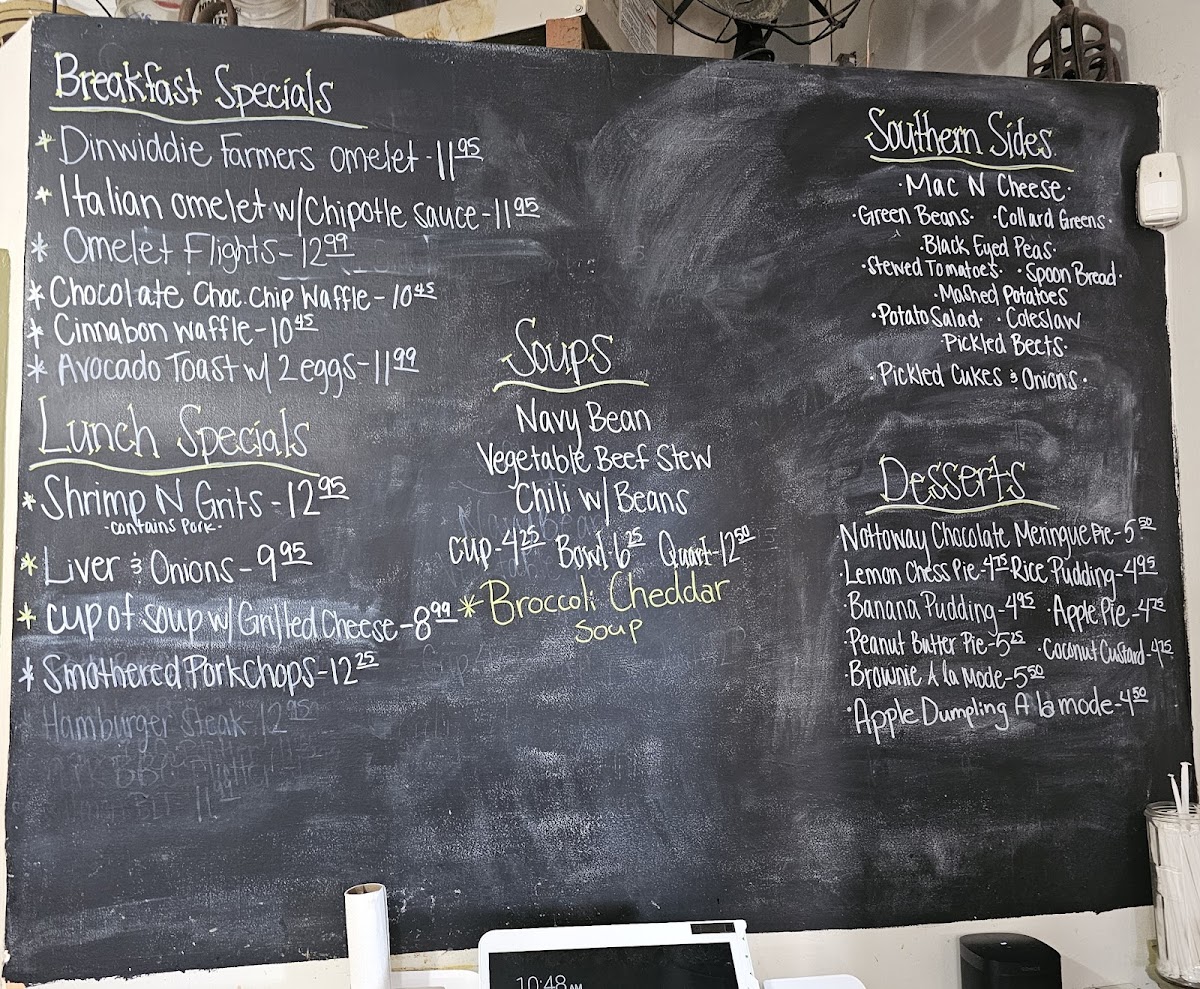 Breakfast Specials
* Dinwiddie Farmers omelet - 11.95
* Italian omelet w/Chipotle sauce - 11.95
* Omelet Flights - 12.99
* Chocolate Choc. Chip Waffle - 10.45
* Cinnabon Waffle - 10.45
* Avocado Toast w/ 2 eggs - 11.99
Lunch Specials
* Shrimp N Grits - 12.95
-contains Pork-
* Liver & Onions - 9.95
* Cup of soup w/ Grilled Cheese - 8.99
* Smothered Pork Chops - 12.25
Hamburger Steak - 12.95
Soups
Navy Bean
Vegetable Beef Stew
Chili w/ Beans
Cup - 4.25 Bowl - 6.25 Quart - 12.50
* Broccoli Cheddar
Soup
Southern Sides
· Mac N Cheese ·
· Green Beans · · Collard Greens ·
· Black Eyed Peas ·
· Stewed Tomatoes · · Spoon Bread ·
· Mashed Potatoes
· Potato Salad · · Coleslaw
· Pickled Beets ·
· Pickled Cukes & Onions ·
Desserts
Nottoway Chocolate Meringue Pie - 5.50
· Lemon Chess Pie - 4.75 Rice Pudding - 4.95
· Banana Pudding - 4.95 · Apple Pie - 4.75
· Peanut Butter Pie - 5.25 · Coconut Custard - 4.75
· Brownie A la Mode - 5.50
· Apple Dumpling A la mode - 4.50
10:48 AM